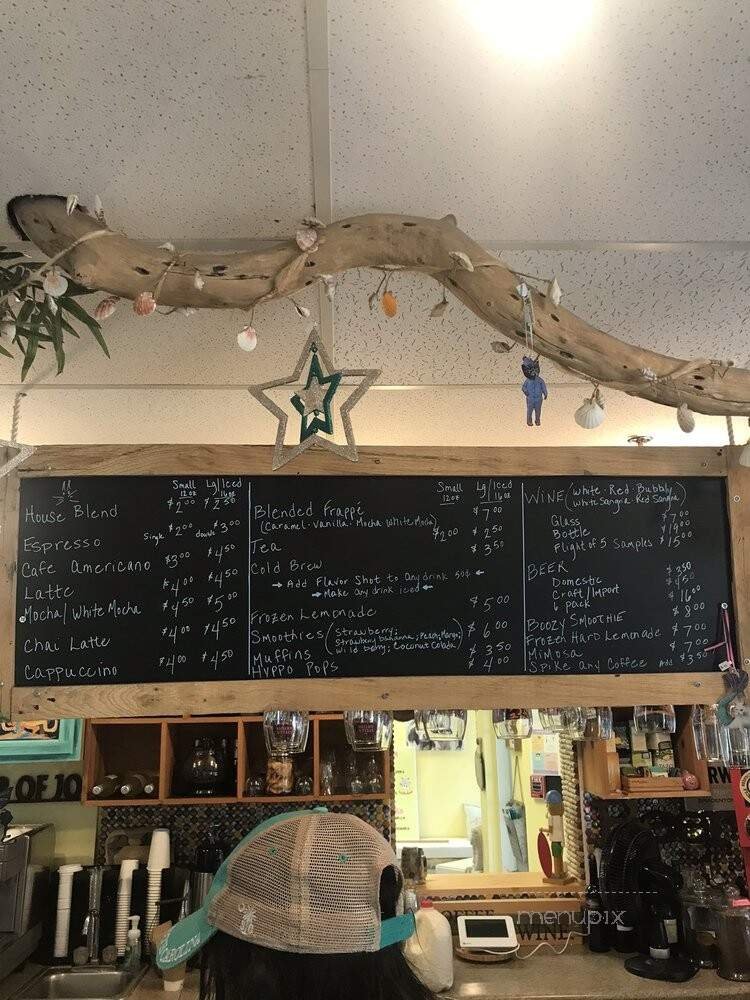 Small Lg/Iced
12oz 16oz
House Blend $2.00 $2.50
Espresso single $2.00 double $3.00
Cafe Americano $3.00 $4.50
Latte $4.00 $4.50
Mocha/White Mocha $4.50 $5.00
Chai Latte $4.00 $4.50
Cappuccino $4.00 $4.50
Small Lg/Iced
12oz 16oz
Blended Frappé $7.00
(Caramel·Vanilla·Mocha White Mocha)
Tea $2.00 $2.50
Cold Brew $3.50
Add Flavor Shot to Any drink 50¢
Make any drink iced
Frozen Lemonade $5.00
Smoothies (Strawberry; $6.00
Strawberry banana; Peach; Mango;
Wild berry; Coconut Colada)
Muffins $3.50
Hyppo Pops $4.00
WINE (White·Red·Bubbly
White Sangria Red Sangria)
Glass $7.00
Bottle $19.00
Flight of 5 Samples $15.00
BEER
Domestic $3.50
Craft/Import
6 pack $16.00
Boozy Smoothie $8.00
Frozen Hard Lemonade $7.00
Mimosa $7.00
Spike Any Coffee Add $3.50
OF 10
CAROLINA
COFFEE
WINE
menupix